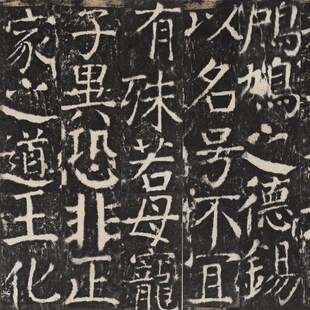 鳲鳩之德錫
以名号不宜
有殊若母寵
子異恐非正
家之道王化